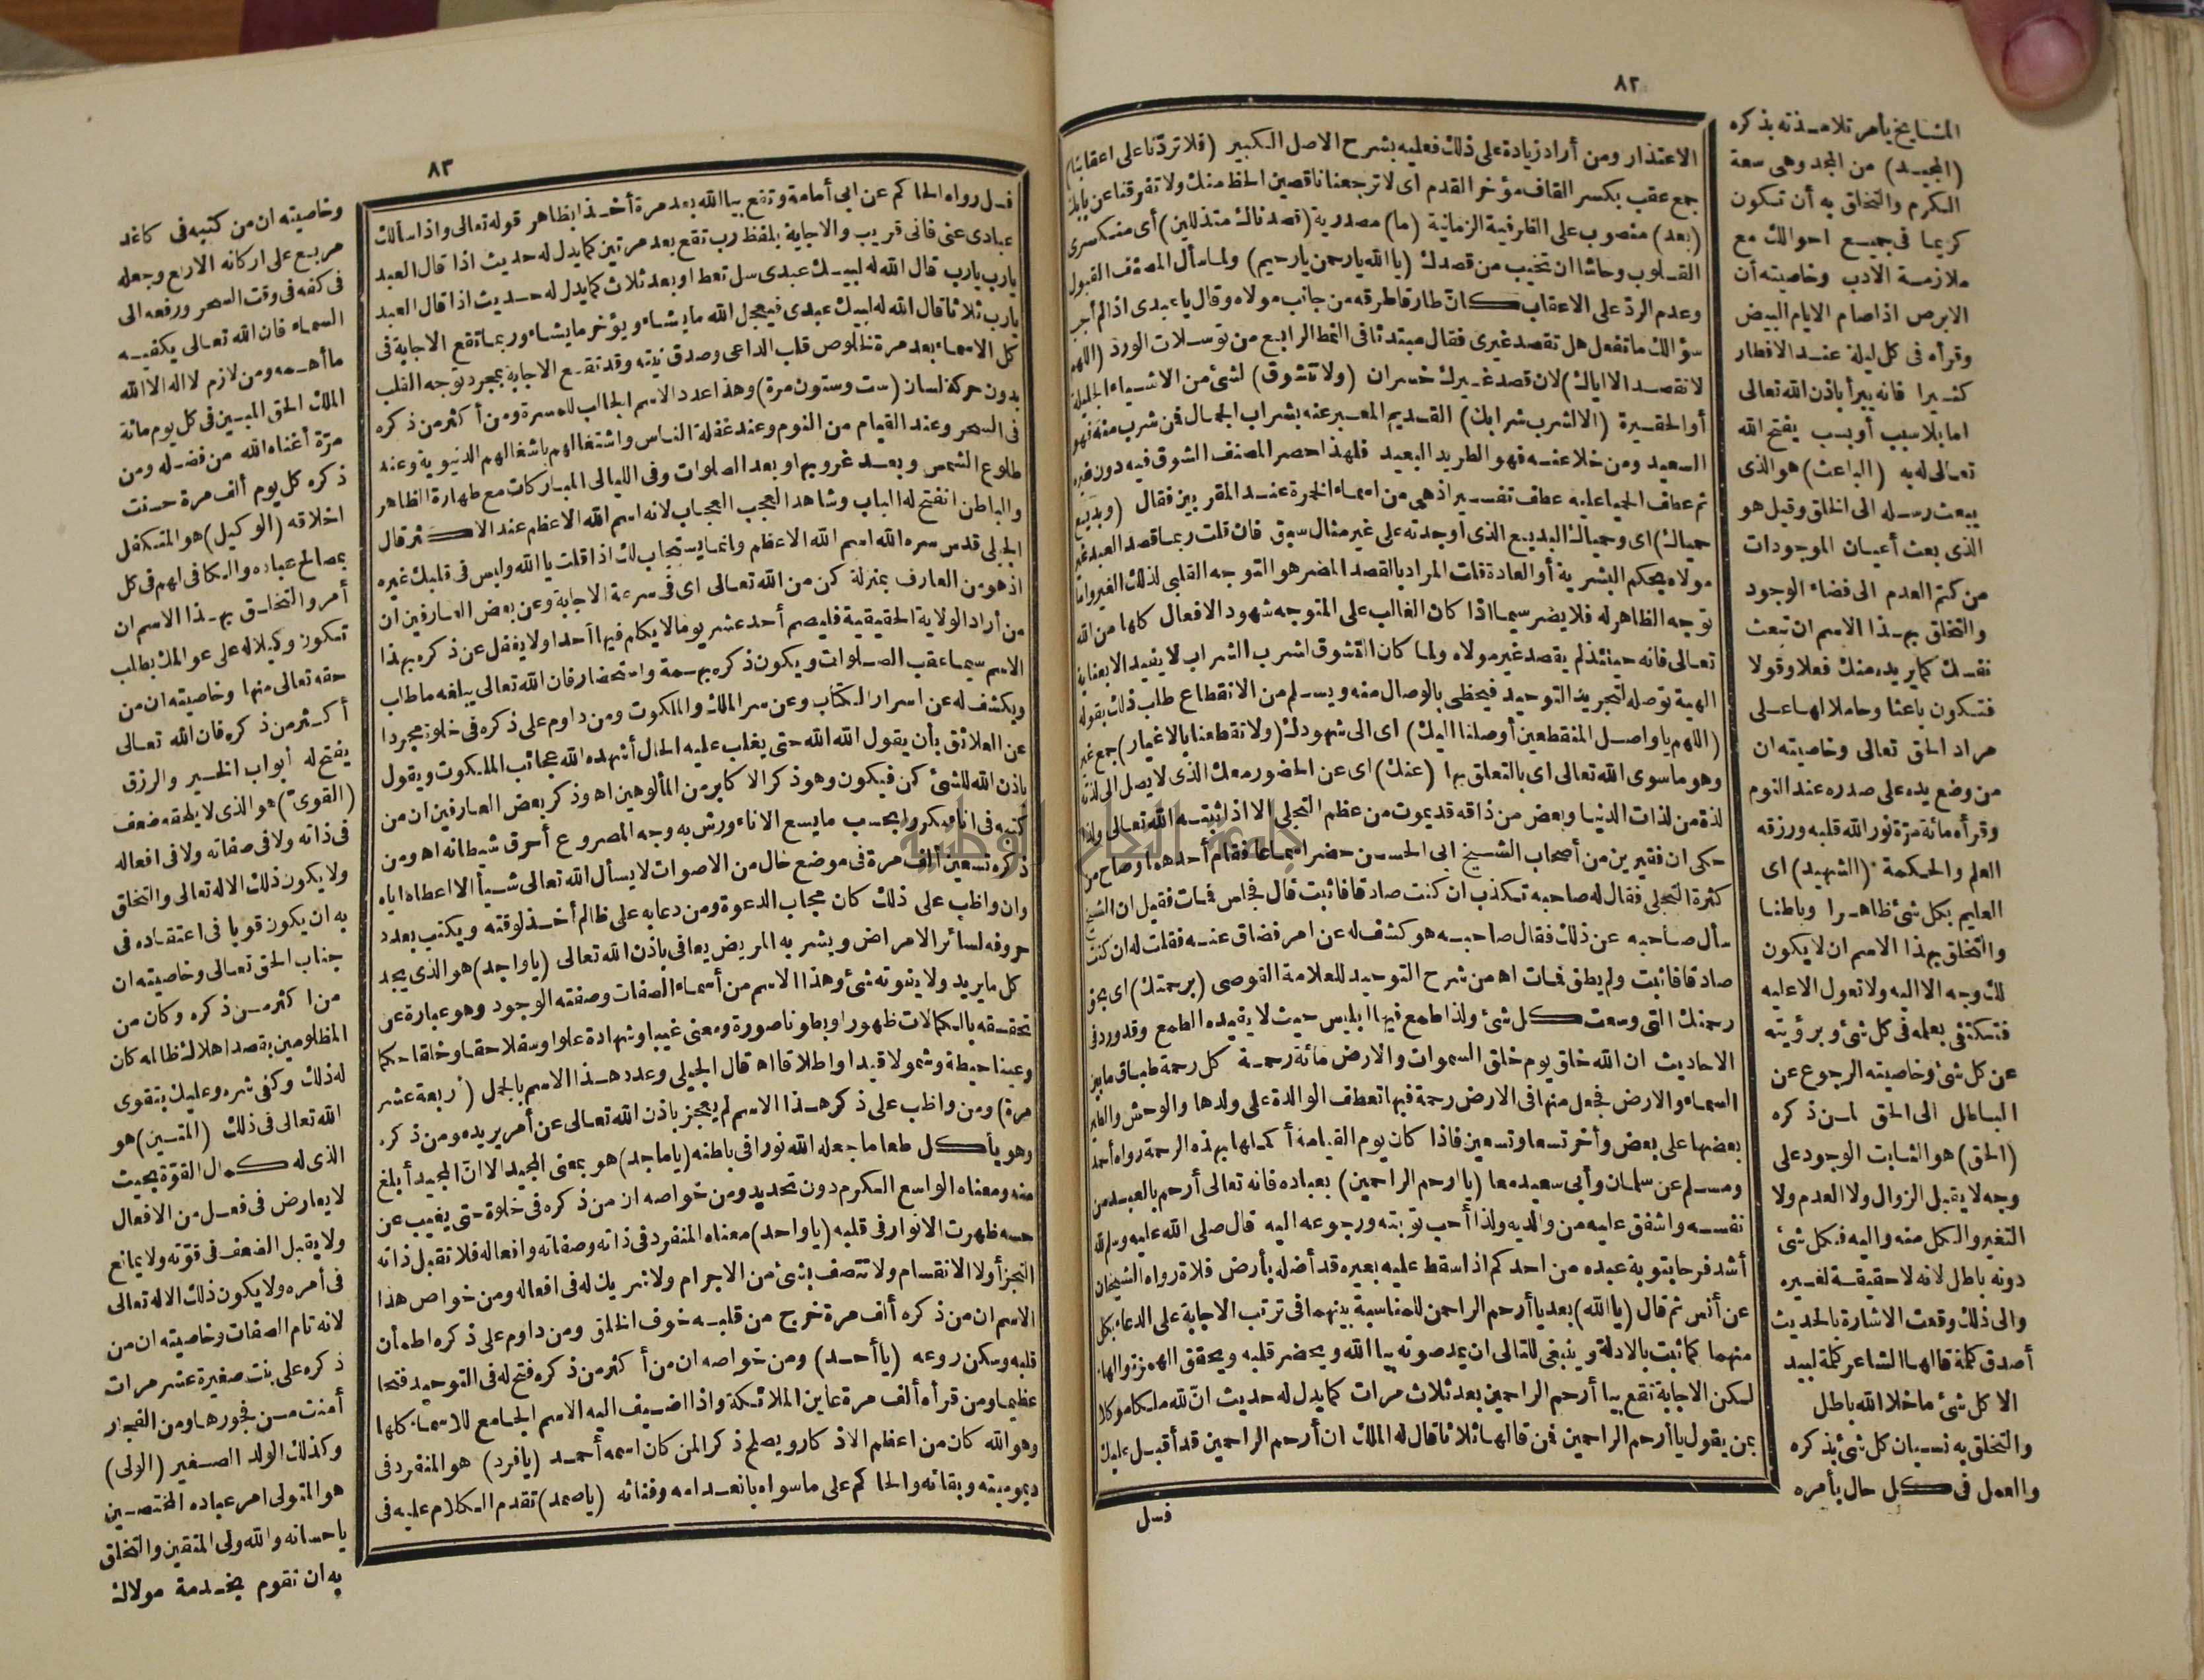 ٨٢
الاعتذار ومن أراد زيادة على ذلك فعليه بشرح الاصل الكبير (فلا تردّنا على اعقابنا)
جمع عقب بكسر القاف مؤخر القدم اى لا ترجعنا ناقصين الحظ منك ولا تفرقنا عن بابك
(بعد) منصوب على الظرفية الزمانية (ما) مصدرية (قصدناك متذللين) أى منكسرى
القلوب وحاشا ان تخيب من قصدك (يا الله يا رحمن يا رحيم) ولما سأل المصنف القبول
وعدم الردّ على الاعقاب كانّ طارقا طرقه من جانب مولاه وقال يا عبدى اذا لم أجر
سؤالك ما تفعل هل تقصد غيرى فقال مبتدئا فى النمط الرابع من توسلات الورد (اللهم
لا نقصد الا اياك) لان قصد غيرك خسران (ولا نتشوق) لشئ من الاشياء الجليلة
أو الحقيرة (الا لشرب شرابك) القديم المعبر عنه بشراب الجمال فمن شرب منه فهو
السعيد ومن خلا عنه فهو الطريد البعيد فلهذا حصر المصنف الشوق فيه دون غيره
ثم عطف الحميا عليه عطف تفسير اذ هى من اسماء الخمرة عند المقربين فقال (وبديع
حمياك) اى وحمياك البديع الذى أوجدته على غير مثال سبق فان قلت ربما قصد العبد غير
مولاه بحكم البشرية أو العادة قلت المراد بالقصد المضر هو التوجه القلبى لذلك الغير واما
توجه الظاهر له فلا يضر سيما اذا كان الغالب على المتوجه شهود الافعال كلها من الله
تعالى فانه حينئذ لم يقصد غير مولاه ولما كان التشوق لشرب الشراب لا يفيد الا بعناية
الهية توصله لتجريد التوحيد فيحظى بالوصال منه ويسلم من الانقطاع طلب ذلك بقوله
(اللهم يا واصل المنقطعين أوصلنا اليك) اى الى شهودك (ولا تقطعنا بالاغيار) جمع غير
وهو ما سوى الله تعالى اى بالتعلق بها (عنك) اى عن الحضور معك الذى لا يصل الى لذته
لذة من لذات الدنيا وبعض من ذاقه قد يموت من عظم التجلى الا اذا ثبته الله تعالى ولذا
حكى ان فقيرين من أصحاب الشيخ ابى الحسن حضرا سماعا فقام أحدهما وصاح من
كثرة التجلى فقال له صاحبه تكذب ان كنت صادقا فاثبت قال فجلس فمات فقيل ان الشيخ
سأل صاحبه عن ذلك فقال صاحبه هو كشف له عن امر فضاق عنه فقلت له ان كنت
صادقا فاثبت ولم يطق فمات اه من شرح التوحيد للعلامة القوصى (برحمتك) اى بحق
رحمتك التى وسعت كل شئ ولذا طمع فيها ابليس حيث لا يفيده الطمع وقد ورد فى
الاحاديث ان الله خلق يوم خلق السموات والارض مائة رحمة كل رحمة طباق ما بين
السماء والارض فجعل منها فى الارض رحمة فبها تعطف الوالدة على ولدها والوحش والطير
بعضها على بعض وأخر تسعا وتسعين فاذا كان يوم القيامة أكملها بهذه الرحمة رواه أحمد
ومسلم عن سلمان وأبى سعيد معا (يا ارحم الراحمين) بعباده فانه تعالى أرحم بالعبد من
نفسه واشفق عليه من والديه ولذا أحب توبته ورجوعه اليه قال صلى الله عليه وسلم لله
أشد فرحا بتوبة عبده من احدكم اذا سقط عليه بعيره قد أضله بأرض فلاة رواه الشيخان
عن أنس ثم قال (يا الله) بعد يا أرحم الراحمين للمناسبة بينهما فى ترتب الاجابة على الدعاء بكل
منهما كما ثبت بالادلة وينبغى للتالى ان يمد صوته بيا الله ويحضر قلبه ويحقق الهمز والهاء
لكن الاجابة تقع بيا أرحم الراحمين بعد ثلاث مرات كما يدل له حديث انّ لله ملكا موكلا
بمن يقول يا أرحم الراحمين فمن قالها ثلاثا قال له الملك ان أرحم الراحمين قد أقبل عليك
فسل
المشايخ يأمر تلامذته بذكره
(المجيد) من المجد وهى سعة
الكرم والتخلق به أن تكون
كريما فى جميع احوالك مع
ملازمة الادب وخاصيته أن
الابرص اذا صام الايام البيض
وقرأه فى كل ليلة عند الافطار
كثيرا فانه يبرأ باذن الله تعالى
اما بلا سبب أو بسبب يفتح الله
تعالى له به (الباعث) هو الذى
يبعث رسله الى الخلق وقيل هو
الذى بعث أعيان الموجودات
من كتم العدم الى فضاء الوجود
والتخلق بهذا الاسم ان تبعث
نفسك كما يريده منك فعلا وقولا
فتكون باعثا وحاملا لها على
مراد الحق تعالى وخاصيته ان
من وضع يده على صدره عند النوم
وقرأه مائة مرّة نور الله قلبه ورزقه
العلم والحكمة (الشهيد) اى
العليم بكل شئ ظاهرا وباطنا
والتخلق بهذا الاسم ان لا يكون
لك وجه الا اليه ولا تعول الا عليه
فتكتفى بعلمه فى كل شئ وبرؤيته
عن كل شئ وخاصيته الرجوع عن
الباطل الى الحق لمن ذكره
(الحق) هو الثابت الوجود على
وجه لا يقبل الزوال ولا العدم ولا
التغير والكل منه واليه فكل شئ
دونه باطل لانه لا حقيقة لغيره
والى ذلك وقعت الاشارة بالحديث
أصدق كلمة قالها الشاعر كلمة لبيد
الا كل شئ ما خلا الله باطل
والتخلق به نسيان كل شئ بذكره
والعمل فى كل حال بأمره
٨٣
فسل رواه الحاكم عن ابى أمامة وتقع بيا الله بعد مرة أخذا بظاهر قوله تعالى واذا سألك
عبادى عنى فانى قريب والاجابة بلفظ رب تقع بعد مرتين كما يدل له حديث اذا قال العبد
يارب يارب قال الله له لبيك عبدى سل تعط او بعد ثلاث كما يدل له حديث اذا قال العبد
يارب ثلاثا قال الله له لبيك عبدى فيعجل الله ما يشاء ويؤخر ما يشاء وربما تقع الاجابة فى
كل الاسماء بعد مرة لخلوص قلب الداعى وصدق نيته وقد تقع الاجابة بمجرد توجه القلب
بدون حركة لسان (ست وستون مرة) وهذا عدد الاسم الجالب للمسرة ومن أكثر من ذكره
فى السحر وعند القيام من النوم وعند غفلة الناس واشتغالهم باشغالهم الدنيوية وعند
طلوع الشمس وبعد غروبها وبعد الصلوات وفى الليالى المباركات مع طهارة الظاهر
والباطن انفتح له الباب وشاهد العجب العجاب لانه اسم الله الاعظم عند الاكثر قال
الجيلى قدس سره الله اسم الله الاعظم وانما يستجاب لك اذا قلت يا الله وليس فى قلبك غيره
اذ هو من العارف بمنزلة كن من الله تعالى اى فى سرعة الاجابة وعن بعض العارفين ان
من أراد الولاية الحقيقية فليصم أحد عشر يوما لا يكلم فيها أحدا ولا يغفل عن ذكره بهذا
الاسم سيما عقب الصلوات ويكون ذكره بهمة واستحضار فان الله تعالى يبلغه ما طاب
ويكشف له عن اسرار الكتاب وعن سر الملك والملكوت ومن داوم على ذكره فى خلوة مجردا
عن العلائق بأن يقول الله الله حتى يغلب عليه الحال أشهده الله عجائب الملكوت ويقول
باذن الله للشئ كن فيكون وهو ذكر الاكابر من المألوهين اه وذكر بعض العارفين ان من
كتبه فى اناء مكررا بحسب ما يسع الاناء ورش به وجه المصروع أحرق شيطانه اه ومن
ذكره تسعين ألف مرة فى موضع خال من الاصوات لا يسأل الله تعالى شيأ الا اعطاه اياه
وان واظب على ذلك كان مجاب الدعوة ومن دعا به على ظالم أخذ لوقته ويكتب بعدد
حروفه لسائر الامراض ويشربه المريض يعافى باذن الله تعالى (يا واجد) هو الذى يجد
كل ما يريد ولا يفوته شئ وهذا الاسم من أسماء الصفات وصفته الوجود وهو عبارة عن
تحققه بالكمالات ظهورا وبطونا صورة ومعنى غيبا وشهادة علوا وسفلا حقا وخلقا حكما
وعينا حيطة وشمولا قيدا واطلاقا اه قال الجيلى وعدد هذا الاسم بالجمل (أربعة عشر
مرة) ومن واظب على ذكر هذا الاسم لم يعجز باذن الله تعالى عن أمر يريده ومن ذكره
وهو يأكل طعاما جعله الله نورا فى باطنه (يا ماجد) هو بمعنى المجيد الا انّ المجيد أبلغ
منه ومعناه الواسع الكرم دون تحديد ومن خواصه ان من ذكره فى خلوة حتى يغيب عن
حسه ظهرت الانوار فى قلبه (يا واحد) معناه المنفرد فى ذاته وصفاته وافعاله فلا تقبل ذاته
التجزأ ولا الانقسام ولا تتصف بشئ من الاجرام ولا شريك له فى افعاله ومن خواص هذا
الاسم ان من ذكره ألف مرة خرج من قلبه خوف الخلق ومن داوم على ذكره اطمأن
قلبه وسكن روعه (يا أحد) ومن خواصه ان من أكثر من ذكره فتح له فى التوحيد فتحا
عظيما ومن قرأه ألف مرة عاين الملائكة واذا اضيف اليه الاسم الجامع للاسماء كلها
وهو الله كان من اعظم الاذكار ويصلح ذكرا لمن كان اسمه أحمد (يا فرد) هو المنفرد فى
ديموميته وبقائه والحاكم على ما سواه بانعدامه وفنائه (يا صمد) تقدم الكلام عليه فى
وخاصيته ان من كتبه فى كاغد
مربع على اركانه الاربع وجعله
فى كفه فى وقت السحر ورفعه الى
السماء فان الله تعالى يكفيه
ما أهمه ومن لازم لا اله الا الله
الملك الحق المبين فى كل يوم مائة
مرّة أغناه الله من فضله ومن
ذكره كل يوم ألف مرة حسنت
اخلاقه (الوكيل) هو المتكفل
بمصالح عباده والكافى لهم فى كل
أمر والتخلق بهذا الاسم ان
تكون وكيلا له على عوالمك بطلب
حقه تعالى منها وخاصيته ان من
أكثر من ذكره فان الله تعالى
يفتح له أبواب الخير والرزق
(القوى) هو الذى لا يلحقه ضعف
فى ذاته ولا فى صفاته ولا فى افعاله
ولا يكون ذلك الا له تعالى والتخلق
به ان يكون قويا فى اعتقاده فى
جناب الحق تعالى وخاصيته ان
من اكثر من ذكره وكان من
المظلومين بقصد اهلاك ظالمه كان
له ذلك وكفى شره وعليك بتقوى
الله تعالى فى ذلك (المتين) هو
الذى له كمال القوّة بحيث
لا يعارض فى فعل من الافعال
ولا يقبل الضعف فى قوّته ولا يمانع
فى أمره ولا يكون ذلك الا له تعالى
لانه تام الصفات وخاصيته ان من
ذكره على بنت صغيرة عشر مرات
أمنت من فجورها ومن الفجار
وكذلك الولد الصغير (الولى)
هو المتولى امر عباده المختصين
باحسانه والله ولى المتقين والتخلق
به ان تقوم بخدمة مولاك
جامعة النجاح الوطنية